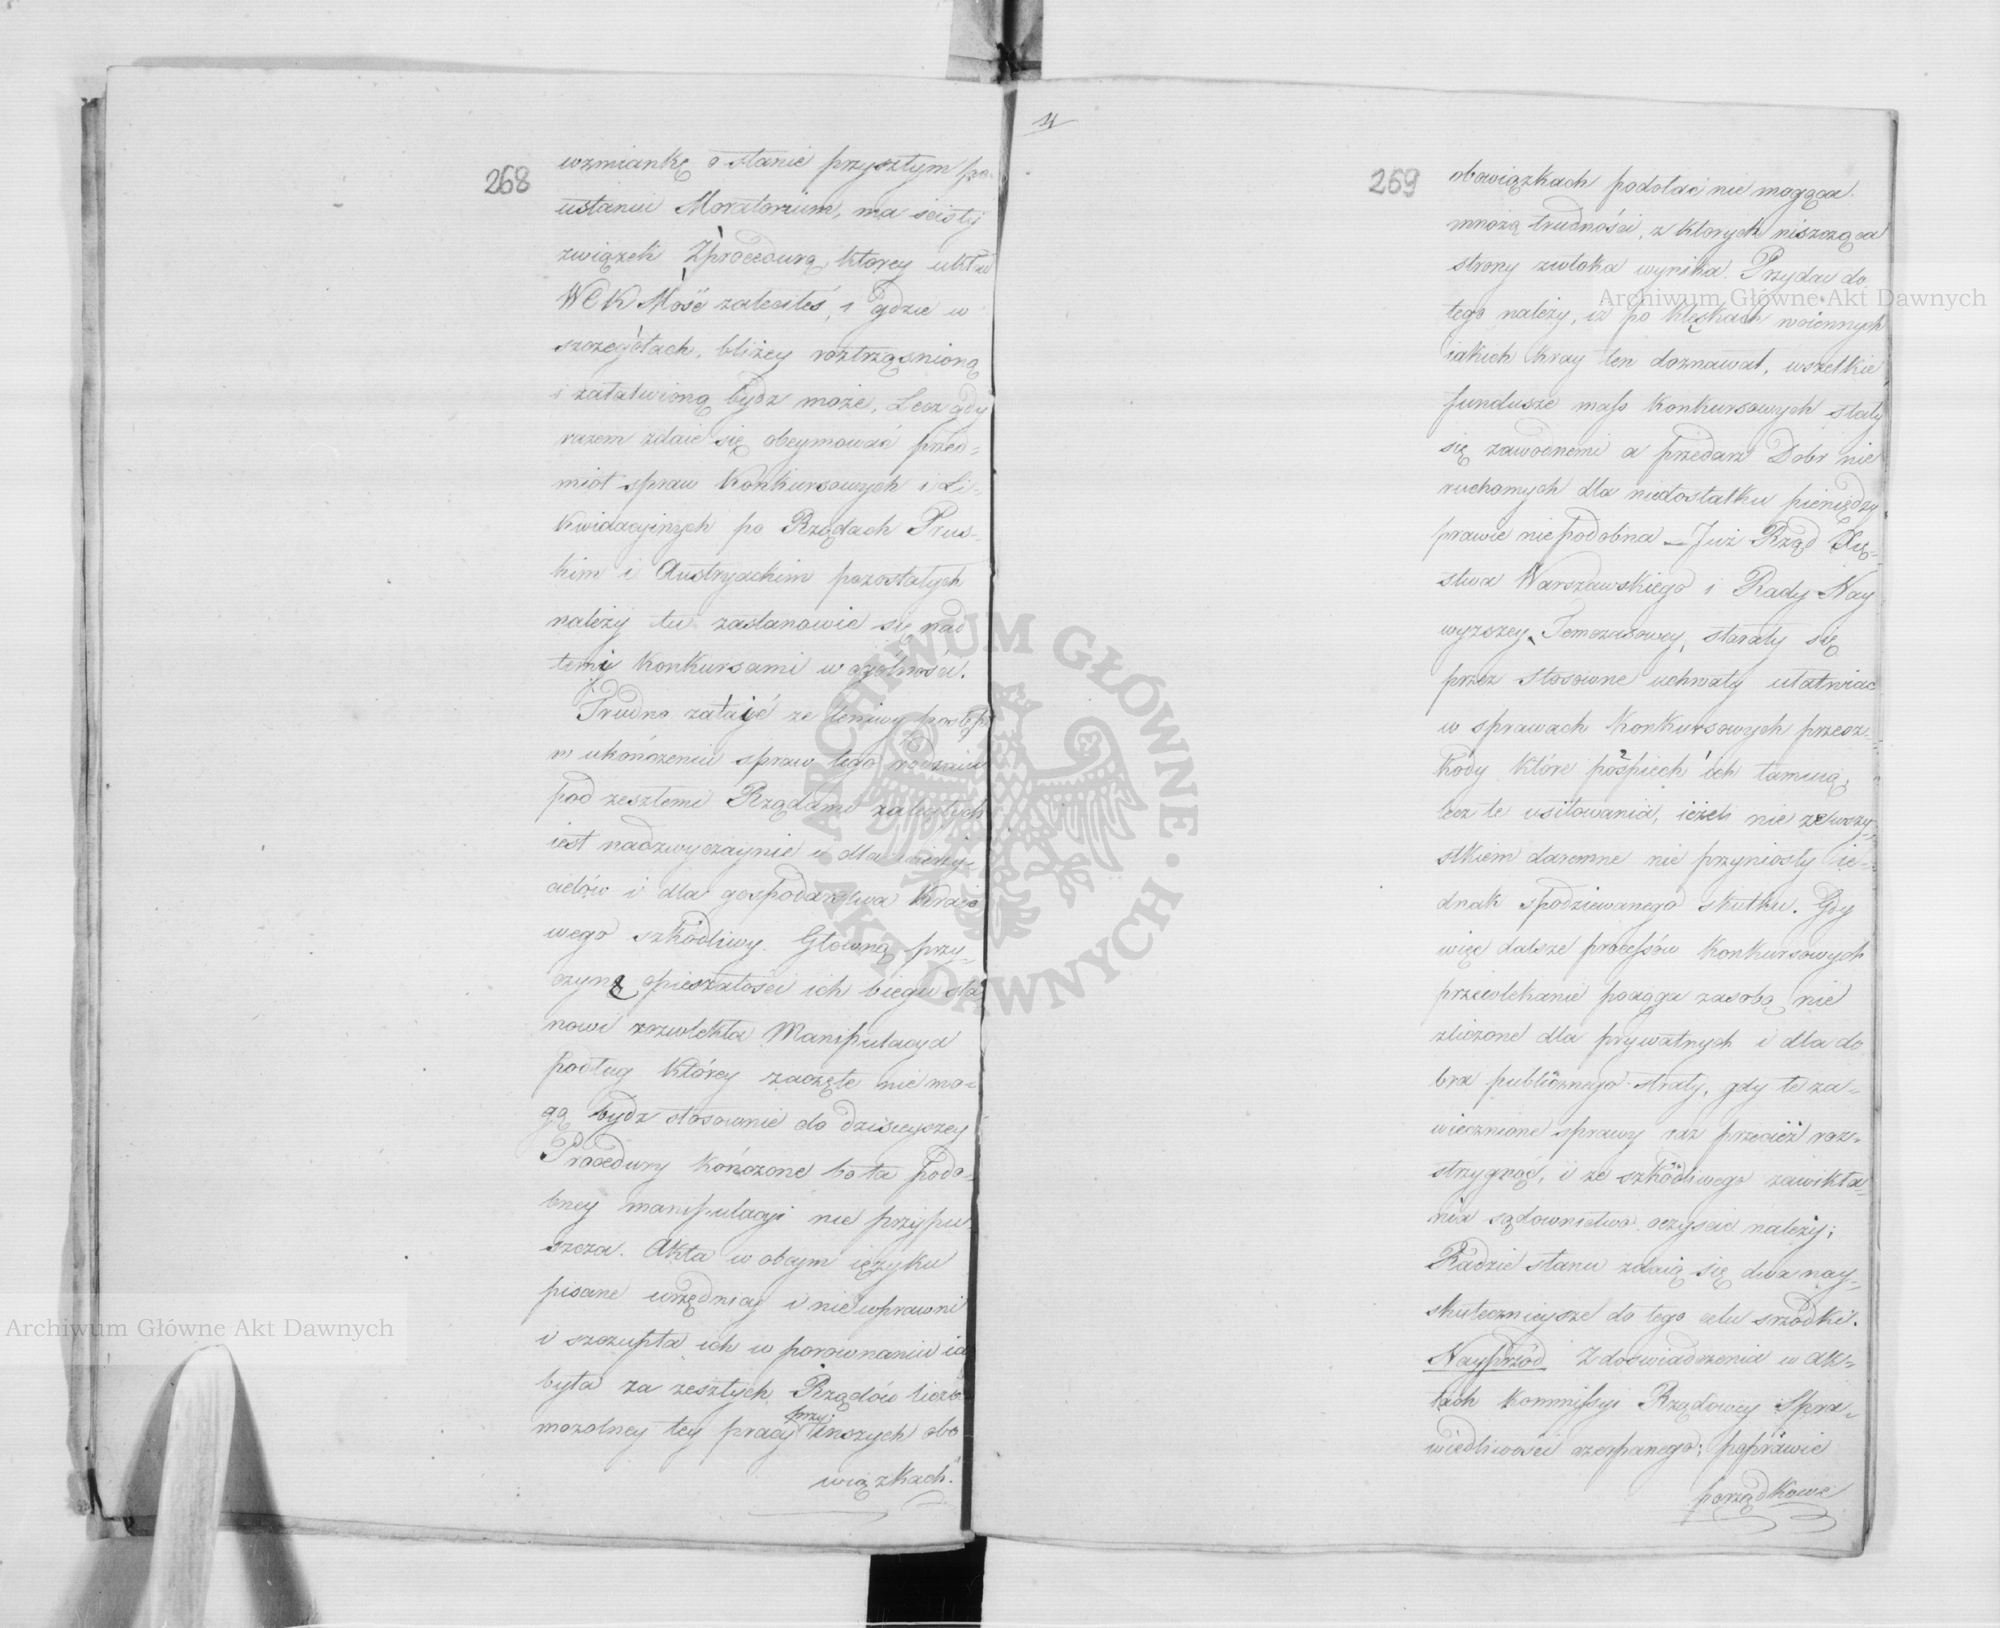 268
wzmiankę o stanie przyszłym po
ustaniu Moratorium, ma ścisły
związek z procedurą, ktorey układ
WCK Mość zaleciłeś, i gdzie w
szczegółach, bliżey roztrząsnioną
i załatwioną bydz może. Lecz gdy
razem zdaie się obeymować przed=
miot spraw Konkursowych i Li=
kwidacyinych po Rządach Prus=
kim i Austryackim pozostałych
należy tu zastanowic się nad
temi Konkursami w ogólności.
Trudno zataić ze leniwy postęp
w ukończeniu spraw tego rodzaiu
pod zeszłemi Rządami zaległych
iest nadzwyczaynie i dla wierzy=
cielów i dla gospodarstwa Kraio
wego szkodliwy. Główną przy=
czyną opieszałości ich biegu sta
nowi rozwlekła Manipulacya
podług którey zaczęte nie mo=
gą bydz stosownie do dzisieyszey
Procedury kończone bo ta podo=
bney manipulacyi nie przypu
szcza. Akta w obcym ięzyku
pisane urzędnicy i nie wprawni
i szczupła ich w porownaniu ia
była za zeszłych Rządów liczb
mozolney tey pracy przy innych obo
wiązkach.
11
269
obowiązkach podołać nie mogąca.
mnożą trudności, z ktorych niszcząca
strony zwłoka wynika. Przydac do
tego należy, iż po klęskach woiennych
iakich kray ten doznawał, wszelkie
fundusze mass Konkursowych stały
się zawodnemi a przedarz Dobr nie
ruchomych dla niedostatku pieniędzy
prawie niepodobna — Już Rząd Xię=
stwa Warszawskiego i Rady Nay
wyzszey Temczasowey, starały się
przez stosowne uchwały ułatwiac
w sprawach Konkursowych przesz=
kody które pośpiech ich tamuią,
lecz te usiłowania, ieżeli nie zewszy=
stkiem daremne nie przyniosły ie=
dnak spodziewanego skutku. Gdy
więc dalsze processów Konkursowych
przewlekanie pociąga za sobą nie
zliczone dla prywatnych i dla do
bra publicznego straty, gdy te za=
wiecznione sprawy raz przecież roz=
strzygnąć, i ze szkodliwego zawikła=
nia sądownictwo oczyscic należy;
Radzie stanu zdaią się dwa nay=
skutecznieysze do tego celu srzodki.
Nayprzód z doswiadczenia w Ak=
tach Kommissyi Rządowey Spra=
wiedliwości czerpanego; poprawie
porządkowe
Archiwum Główne Akt Dawnych
Archiwum Główne Akt Dawnych
ARCHIWUM GŁÓWNE AKT DAWNYCH